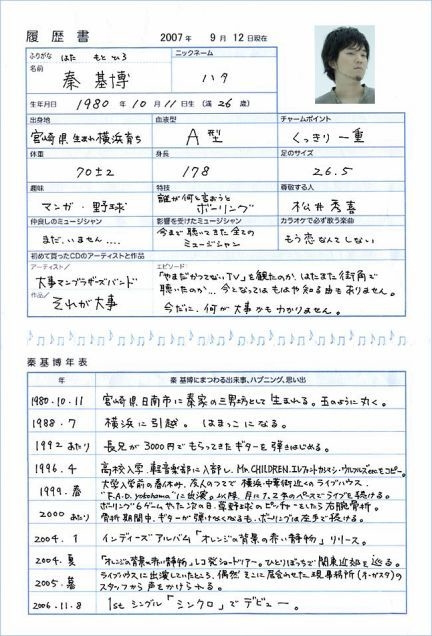 履歴書
2007年 9月 12日現在
ふりがな はた もとひろ
ニックネーム
名前 秦 基博
ハタ
生年月日 1980年 10月 11日生(満 26歳)
出身地
血液型
チャームポイント
宮崎県生まれ横浜育ち
A型
くっきり一重
体重
身長
足のサイズ
70±2
178
26.5
趣味
特技
尊敬する人
マンガ・野球
誰が何と言おうとボーリング
松井秀喜
仲良しのミュージシャン
影響を受けたミュージシャン
カラオケで必ず歌う楽曲
まだ、いません....
今まで聴いてきた全てのミュージシャン
もう恋なんてしない
初めて買ったCDのアーティストと作品
アーティスト/
エピソード
大事マンブラザーズバンド
「やまだかつてないTV」を観たのか、はたまた街角で
聴いたのか...今となってはもはや知る由もありません。
作品/ それが大事
今だに、何が大事かもわかりません。
秦基博年表
年
秦 基博にまつわる出来事、ハプニング、思い出
1980.10.11 宮崎県日南市に秦家の三男坊として生まれる。玉のように丸く。
1988.7 横浜に引越。はまっこになる。
1992あたり 長兄が3000円でもらってきたギターを弾きはじめる。
1996.4 高校入学、軽音楽部に入部し、Mr.CHILDREN、エレファントカシマシ、ウルフルズetcをコピー。
1999.春 大学入学前の春休み、友人のツテで横浜・中華街近くのライブハウス
"F.A.D. yokohama"に出演。以降、月に1、2本のペースでライブを続ける。
2000あたり ボーリング6ゲームやた次の日、草野球のピッチャーをしたら右腕骨折。
骨折期間中、ギターが弾けなくなるも、ボーリングは左手で続ける。
2004.1 インディーズアルバム「オレンジの背景の赤い静物」リリース。
2004.夏 「オレンジの背景の赤い静物」レコ発ショートツアー。ひとりぼっちで関東近郊を巡る。
2005.暮 ライブハウスに出演していたところ、偶然そこに居合わせた現事務所(オーガスタ)の
スタッフから声をかけられる。
2006.11.8 1stシングル「シンクロ」でデビュー。